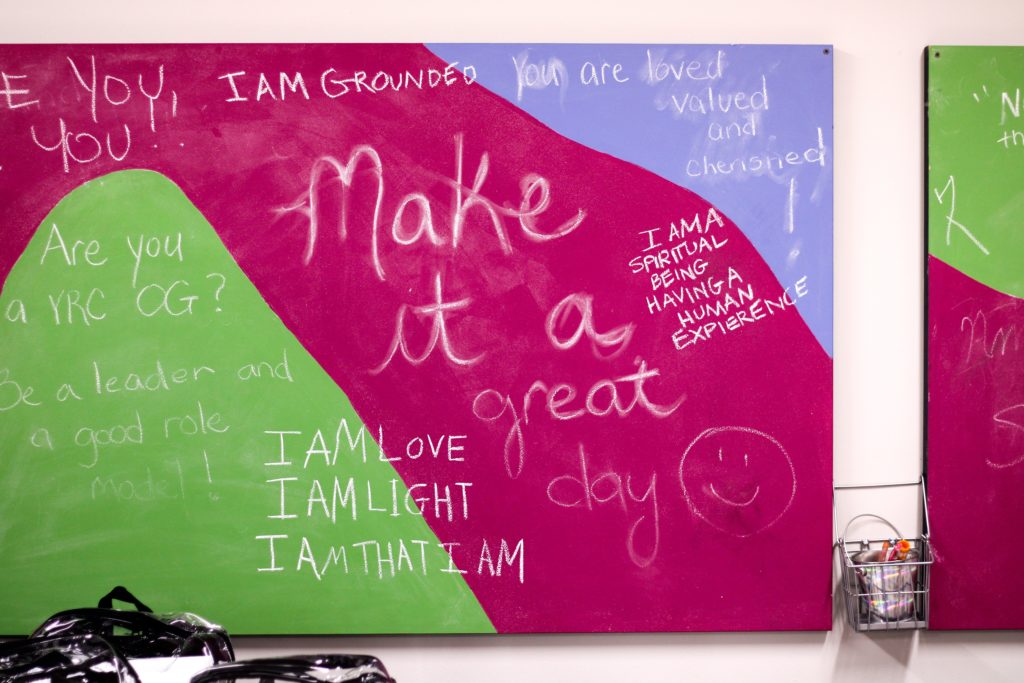 E YOU,
YOU..
I AM GROUNDED
You are loved
valued
and
cherished
!
Make
it a
great
day
I AM A
SPIRITUAL
BEING
HAVING A
HUMAN
EXPIERENCE
Are you
a YRC OG?
Be a leader and
a good role
model!
I AM LOVE
I AM LIGHT
I AM THAT I AM
"N
th